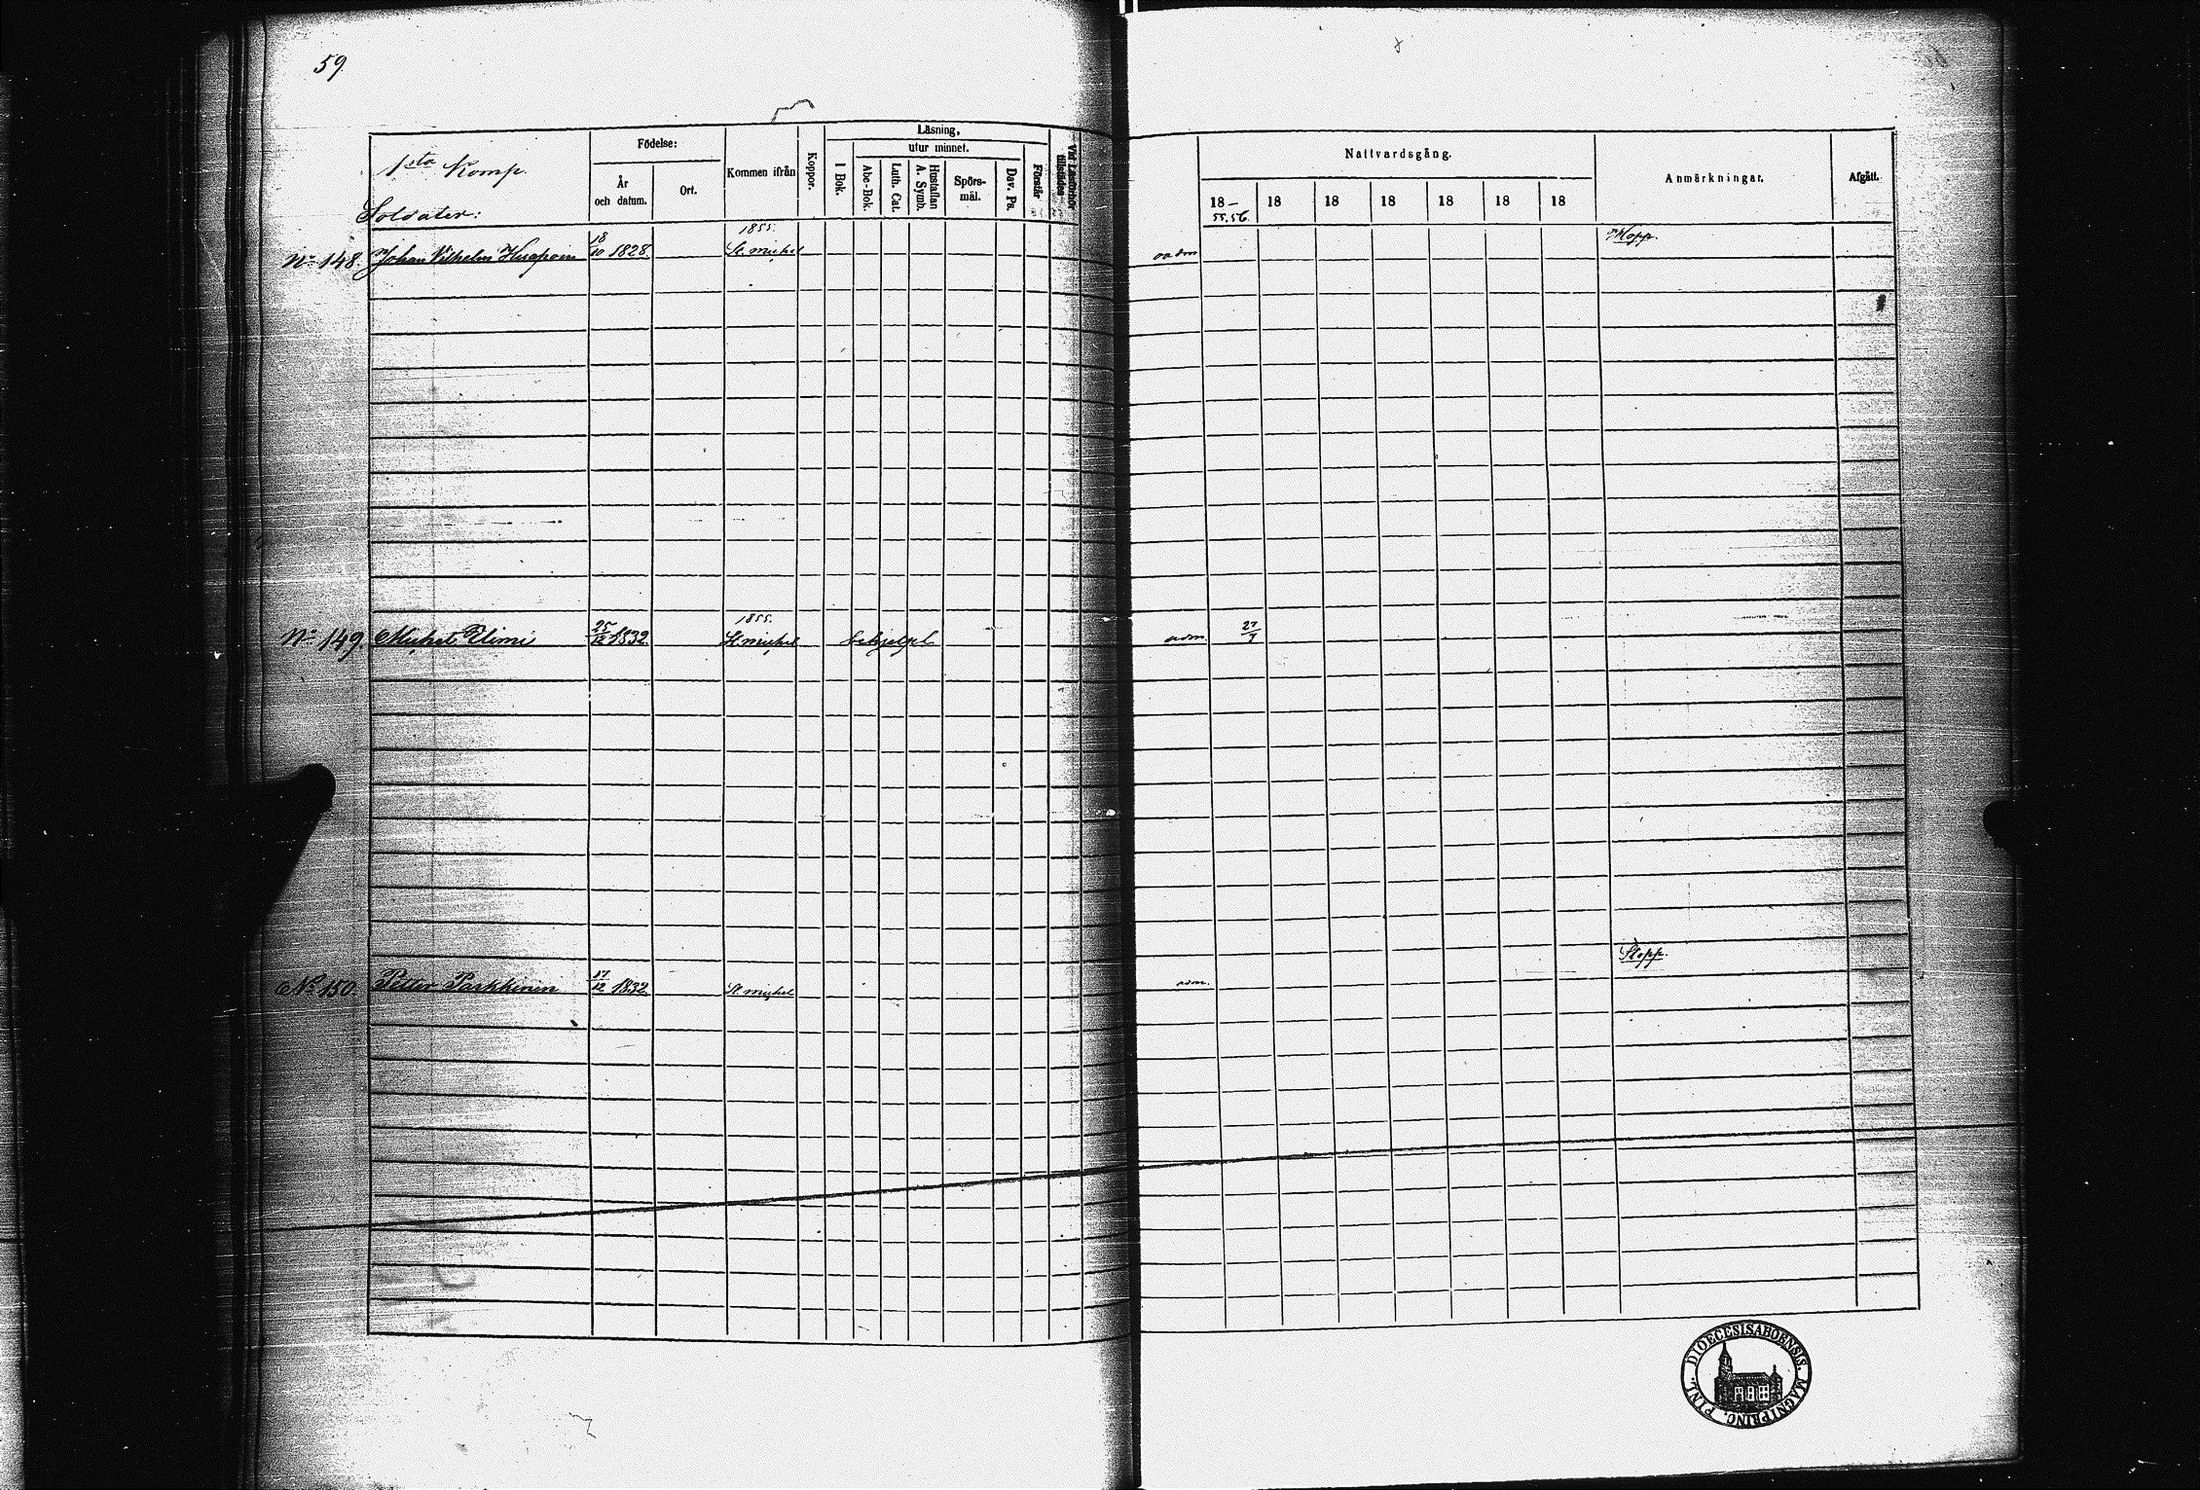 59.
1sta Komp.
Soldater:
Födelse:
År
och datum.
Ort.
Kommen ifrån
Koppor.
Läsning,
utur minnet.
I Bok.
Abc-Bok.
Luth. Cat.
Hustaflan
A. Symb.
Spörs-
mål.
Dav. Ps.
Förstår
Vid Läsförhör
tillstädes
Nattvardsgång.
18-
55.56.
18
18
18
18
18
18
Anmärkningar.
Afgått.
No 148. Johan Vilhelm 18/10 1828. 1855. St. michel
No 149. Michel 25/12 1832. 1855. St. michel adm. 27/7
No 150. Petter Parkkinen 17/12 1832 St michel adm.
DIOECESIS ABOENSIS. MAGNI PRINC. FINL.